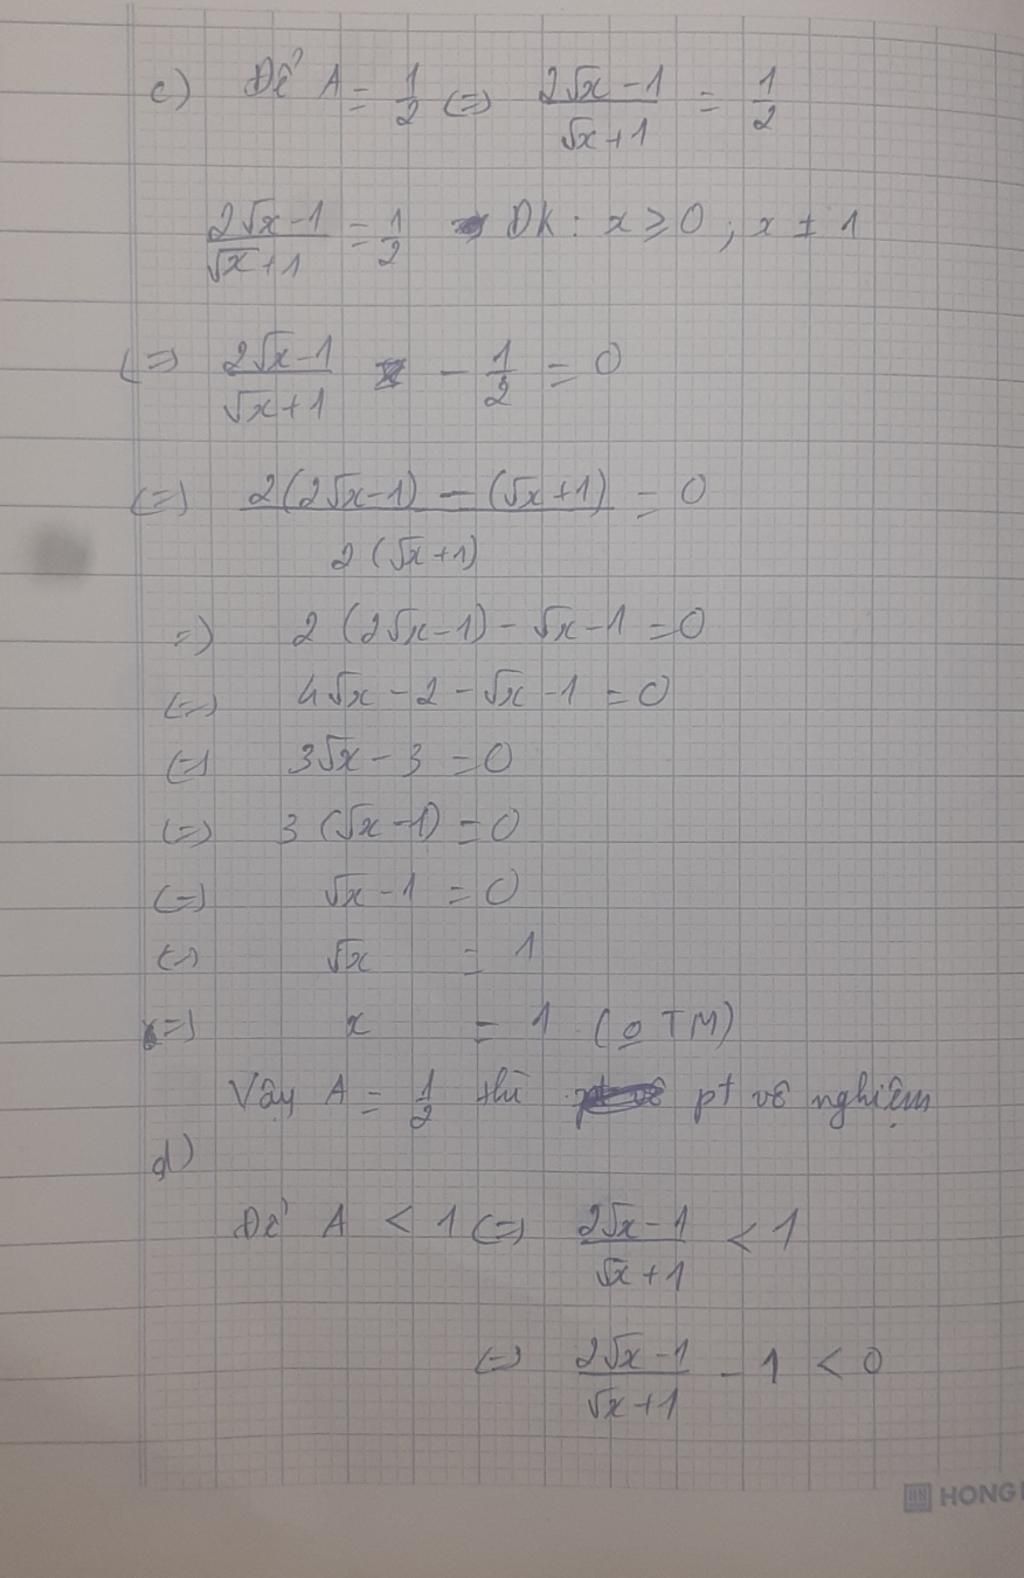 c) Để A = 1/2 (=) (2√x - 1)/(√x + 1) = 1/2
(2√x - 1)/(√x + 1) = 1/2 ĐK: x ≥ 0 ; x ± 1
(=) (2√x - 1)/(√x + 1) - 1/2 = 0
(=) (2(2√x - 1) - (√x + 1))/(2(√x + 1)) = 0
=) 2(2√x - 1) - √x - 1 = 0
(=) 4√x - 2 - √x - 1 = 0
(=) 3√x - 3 = 0
(=) 3(√x - 1) = 0
(=) √x - 1 = 0
(=) √x = 1
(=) x = 1 (o TM)
Vậy A = 1/2 thì pt vô nghiệm
d)
Để A < 1 (=) (2√x - 1)/(√x + 1) < 1
(=) (2√x - 1)/(√x + 1) - 1 < 0
HONG